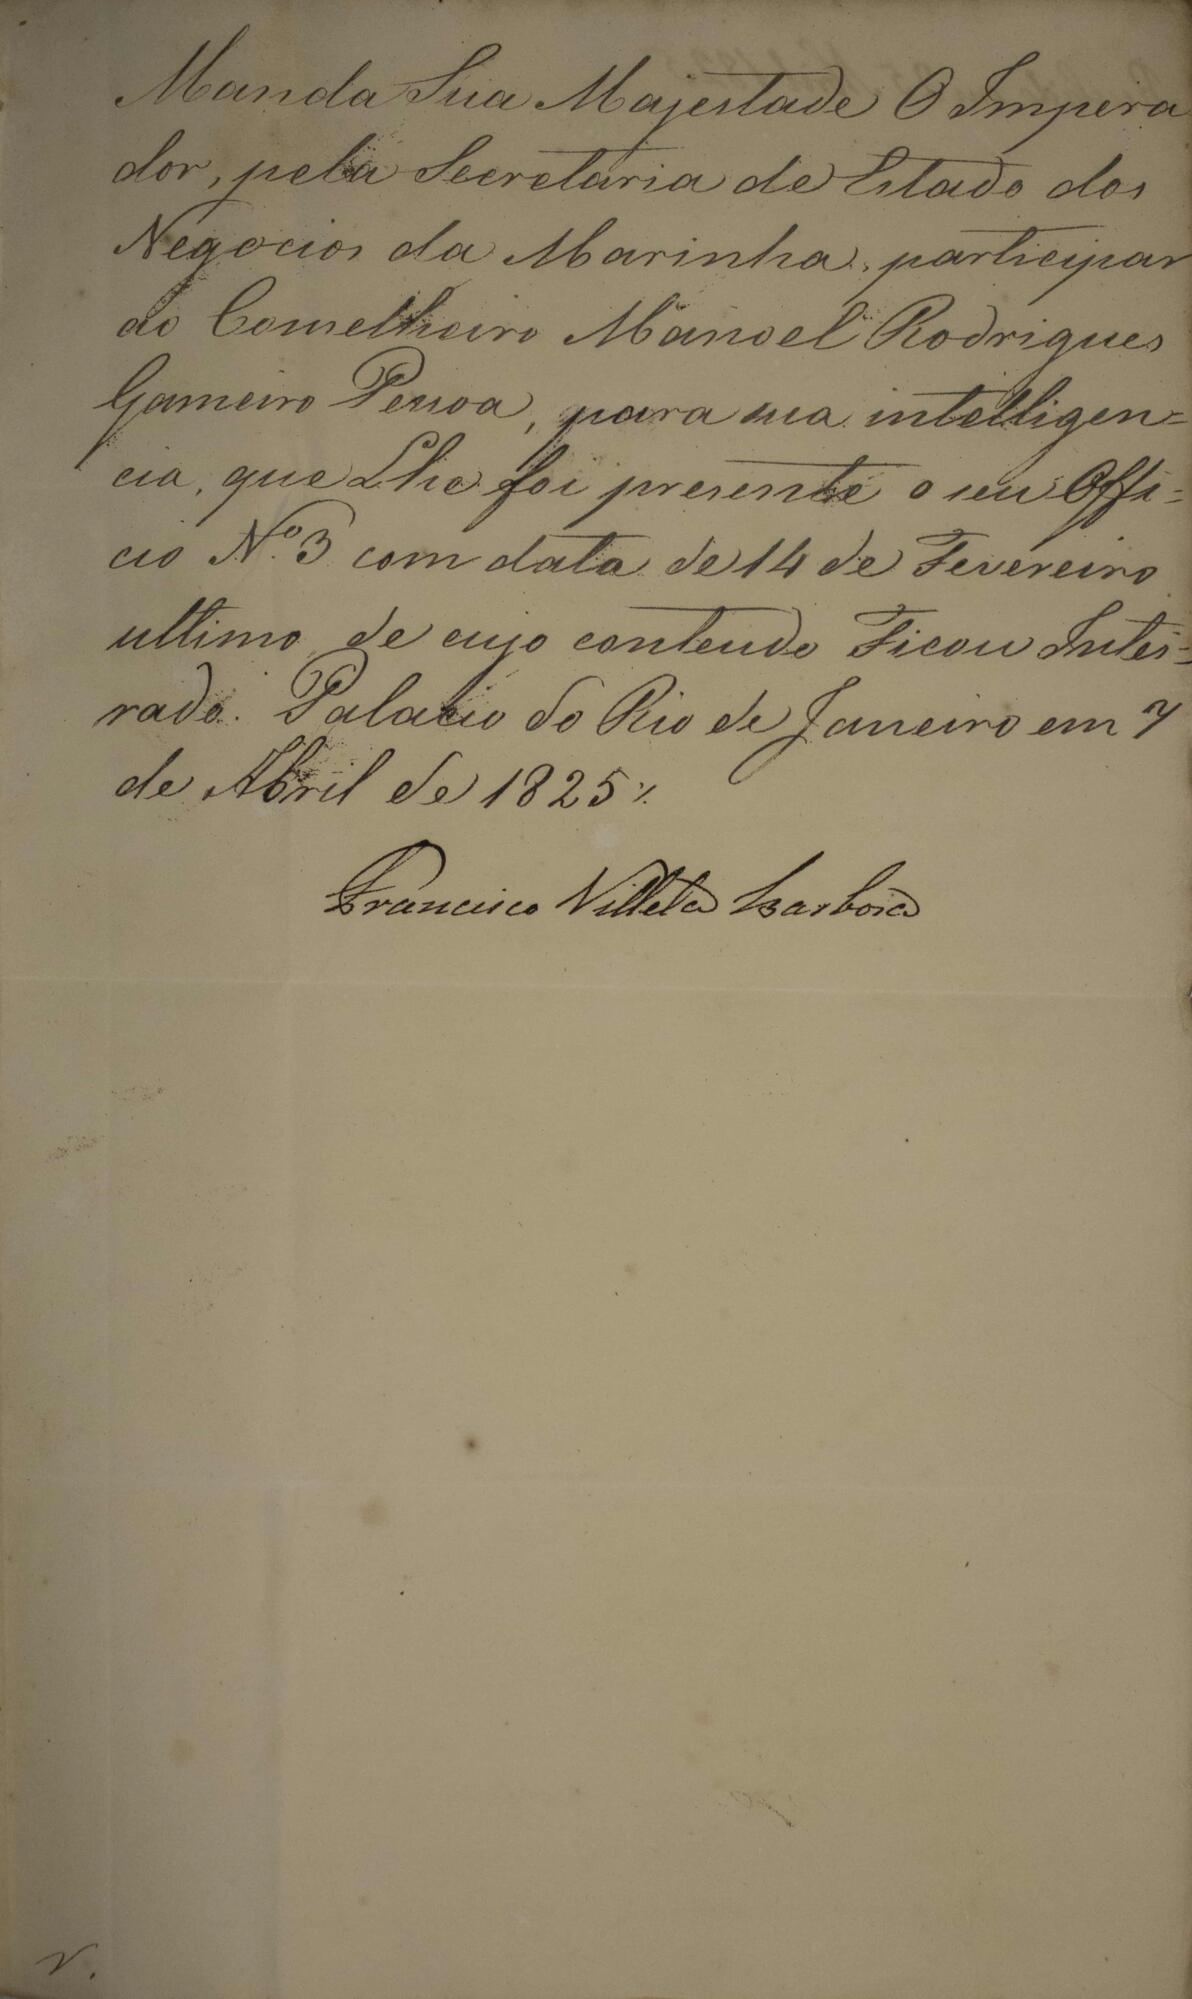 Manda Sua Majestade O Impera
dor, pela Secretaria de Estado dos
Negocios da Marinha, participar
ao Conselheiro Manoel Rodrigues
Gameiro Pessoa, para sua intelligen=
cia, que Lhe foi presente o seu Offi=
cio N.º 3 com data de 14 de Fevereiro
ultimo, de cujo contendo Ficou Intei=
rado. Palacio do Rio de Janeiro em 7
de Abril de 1825 ./.
Francisco Villela Barbosa
V.